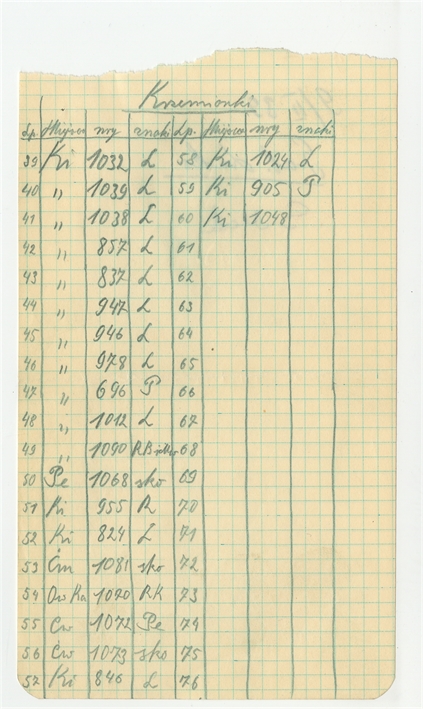 Krzemionki
Lp. Miejsce nry znaki Lp. Miejsce nry znaki
39 Ki 1032 L 58 Ki 1024 L
40 " 1039 L 59 Ki 905 P
41 " 1038 L 60 Ki 1048
42 " 857 L 61
43 " 837 L 62
44 " 947 L 63
45 " 946 L 64
46 " 978 L 65
47 " 696 P 66
48 " 1012 L 67
49 " 1090 68
50 Pe 1068 sko 69
51 Ki 955 R 70
52 Ki 824 L 71
53 Ćm 1081 sko 72
54 Ow Ka 1020 RK 73
55 Ćw 1072 Pe 74
56 Ćw 1073 sko 75
57 Ki 846 L 76